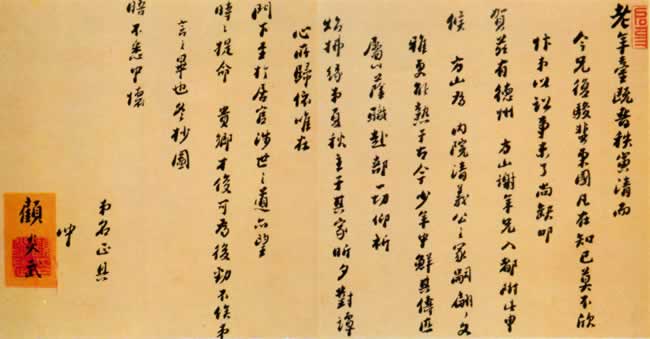 老年臺既晋秩寅清而
令兄復駿蜚東國凡在知己莫不欣
忭弟以訟事未了尚缺叩
賀茲有德州 方山謝年兄入都附此申
候 方山為 内院清義公之冢嗣翩〻文
雅更能熟于古今少年中鮮其儔匹
屬以蔭職赴部一切仰祈
炤拂緣弟夏秋主于其家昕夕對譚
心所歸依唯在
門下至於居官涉世之道亦望
時〻提命 貴鄉才俊可為後勁不俟弟
言之畢也冬杪圖
晤不悉中懷
弟名正具
冲
顧炎武